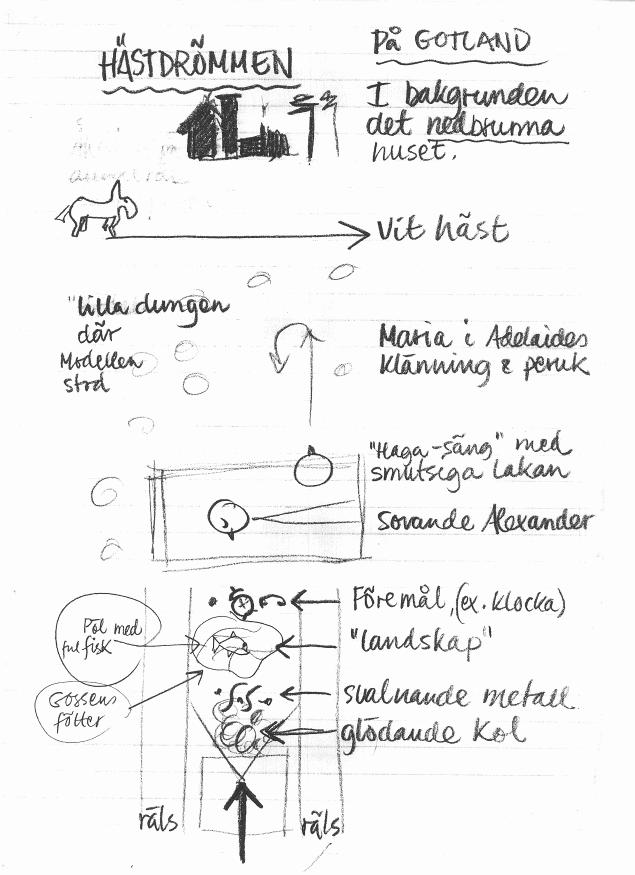 HÄSTDRÖMMEN
På GOTLAND
I bakgrunden
det nedbrunna
huset.
Vit häst
"lilla dungen
där
Modellen
stod
Maria i Adelaides
klänning & peruk
"Haga-säng" med
smutsiga lakan
sovande Alexander
Föremål, (ex. klocka)
"landskap"
Pöl med
ful fisk
Gossens
fötter
svalnande metall
glödande kol
räls
räls